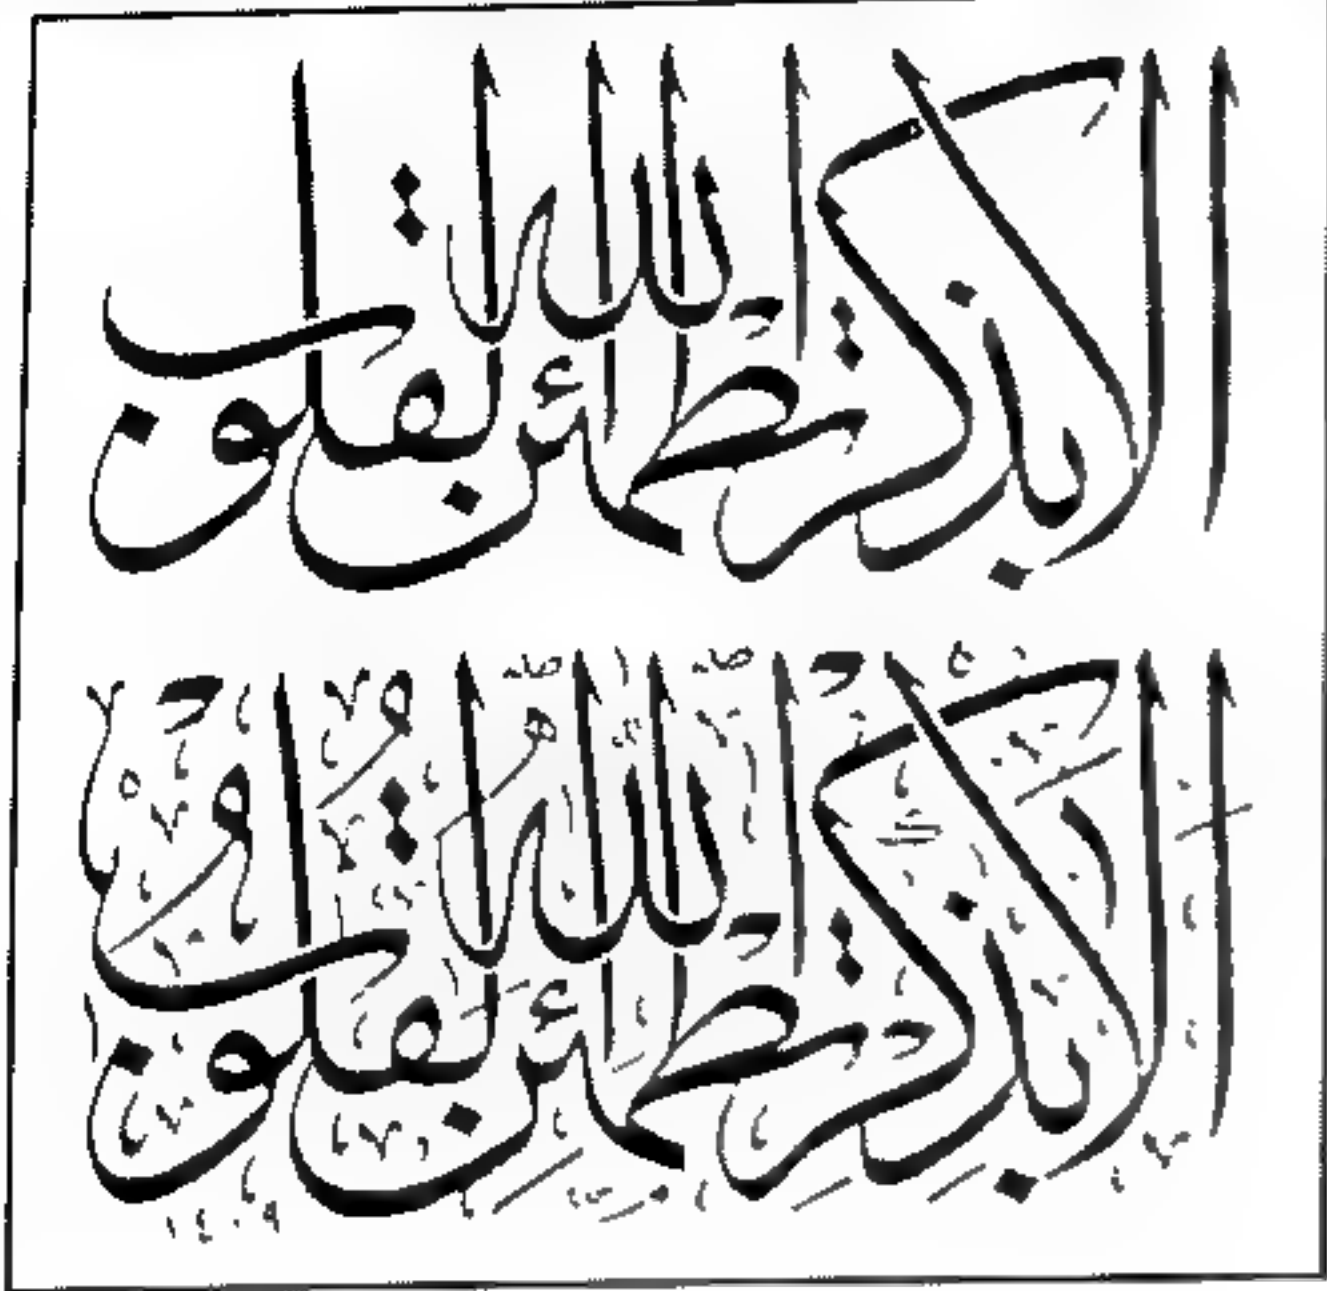 الا بذكر الله تطمئن القلوب
اَلَا بِذِكْرِ اللهِ تَطْمَئِنُّ الْقُلُوبُ
١٤٠٩